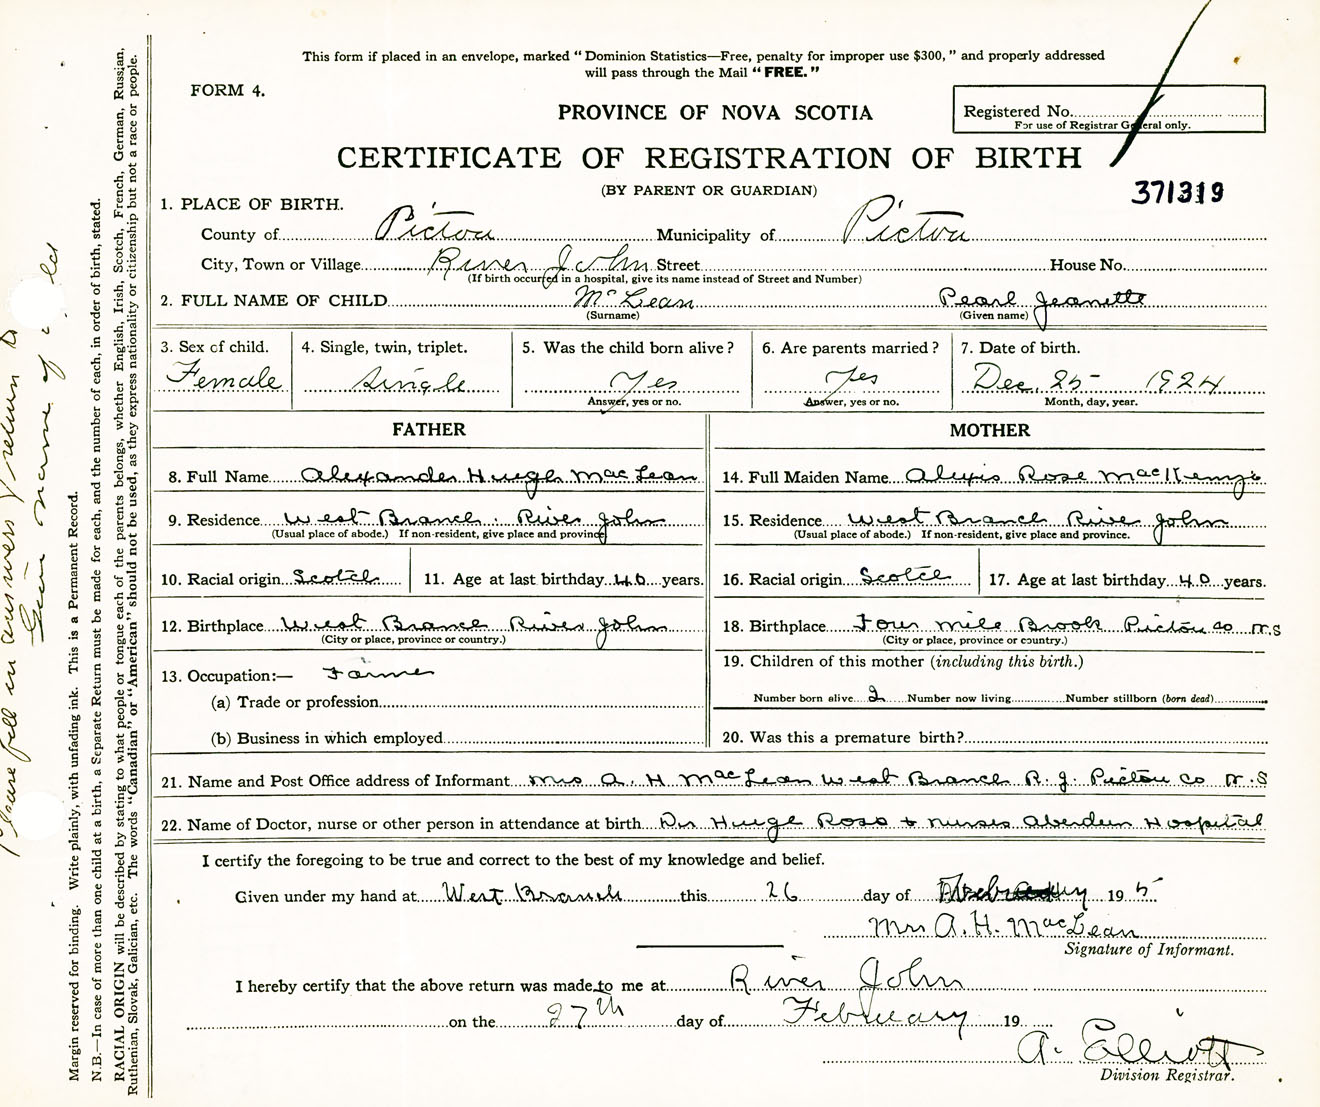 This form if placed in an envelope, marked "Dominion Statistics—Free, penalty for improper use $300," and properly addressed
will pass through the Mail "FREE."
FORM 4.
PROVINCE OF NOVA SCOTIA
Registered No.
For use of Registrar General only.
CERTIFICATE OF REGISTRATION OF BIRTH
(BY PARENT OR GUARDIAN)
371319
1. PLACE OF BIRTH.
County of Pictou Municipality of Pictou
City, Town or Village River John Street House No.
(If birth occurred in a hospital, give its name instead of Street and Number)
2. FULL NAME OF CHILD McLean Pearl Jeanette
(Surname) (Given name)
3. Sex of child. 4. Single, twin, triplet. 5. Was the child born alive? 6. Are parents married? 7. Date of birth.
Female single Yes Yes Dec. 25 1924
Answer, yes or no. Answer, yes or no. Month, day, year.
FATHER MOTHER
8. Full Name Alexander Hugh MacLean 14. Full Maiden Name Alexis Rose MacKenzie
9. Residence West Branch River John 15. Residence West Branch River John
(Usual place of abode.) If non-resident, give place and province (Usual place of abode.) If non-resident, give place and province.
10. Racial origin Scotch 11. Age at last birthday 40 years. 16. Racial origin Scotch 17. Age at last birthday 40 years.
12. Birthplace West Branch River John 18. Birthplace Four Mile Brook Pictou Co N.S
(City or place, province or country.) (City or place, province or country.)
13. Occupation:— Farmer 19. Children of this mother (including this birth.)
(a) Trade or profession Number born alive 2 Number now living Number stillborn (born dead)
(b) Business in which employed 20. Was this a premature birth?
21. Name and Post Office address of Informant Mrs A. H. MacLean West Branch R. J. Pictou Co N. S
22. Name of Doctor, nurse or other person in attendance at birth Dr Hugh Ross + nurses Aberdeen Hospital
I certify the foregoing to be true and correct to the best of my knowledge and belief.
Given under my hand at West Branch this 26 day of February 195
Mrs A. H. MacLean
Signature of Informant.
I hereby certify that the above return was made to me at River John
on the 27th day of February 19
A. Elliott
Division Registrar.
Margin reserved for binding. Write plainly, with unfading ink. This is a Permanent Record.
N.B.—In case of more than one child at a birth, a Separate Return must be made for each, and the number of each, in order of birth, stated.
RACIAL ORIGIN will be described by stating to what people or tongue each of the parents belongs, whether English, Irish, Scotch, French, German, Russian,
Ruthenian, Slovak, Galician, etc. The words "Canadian" or "American" should not be used, as they express nationality or citizenship but not a race or people.
Please fill in answers & return
Given name of